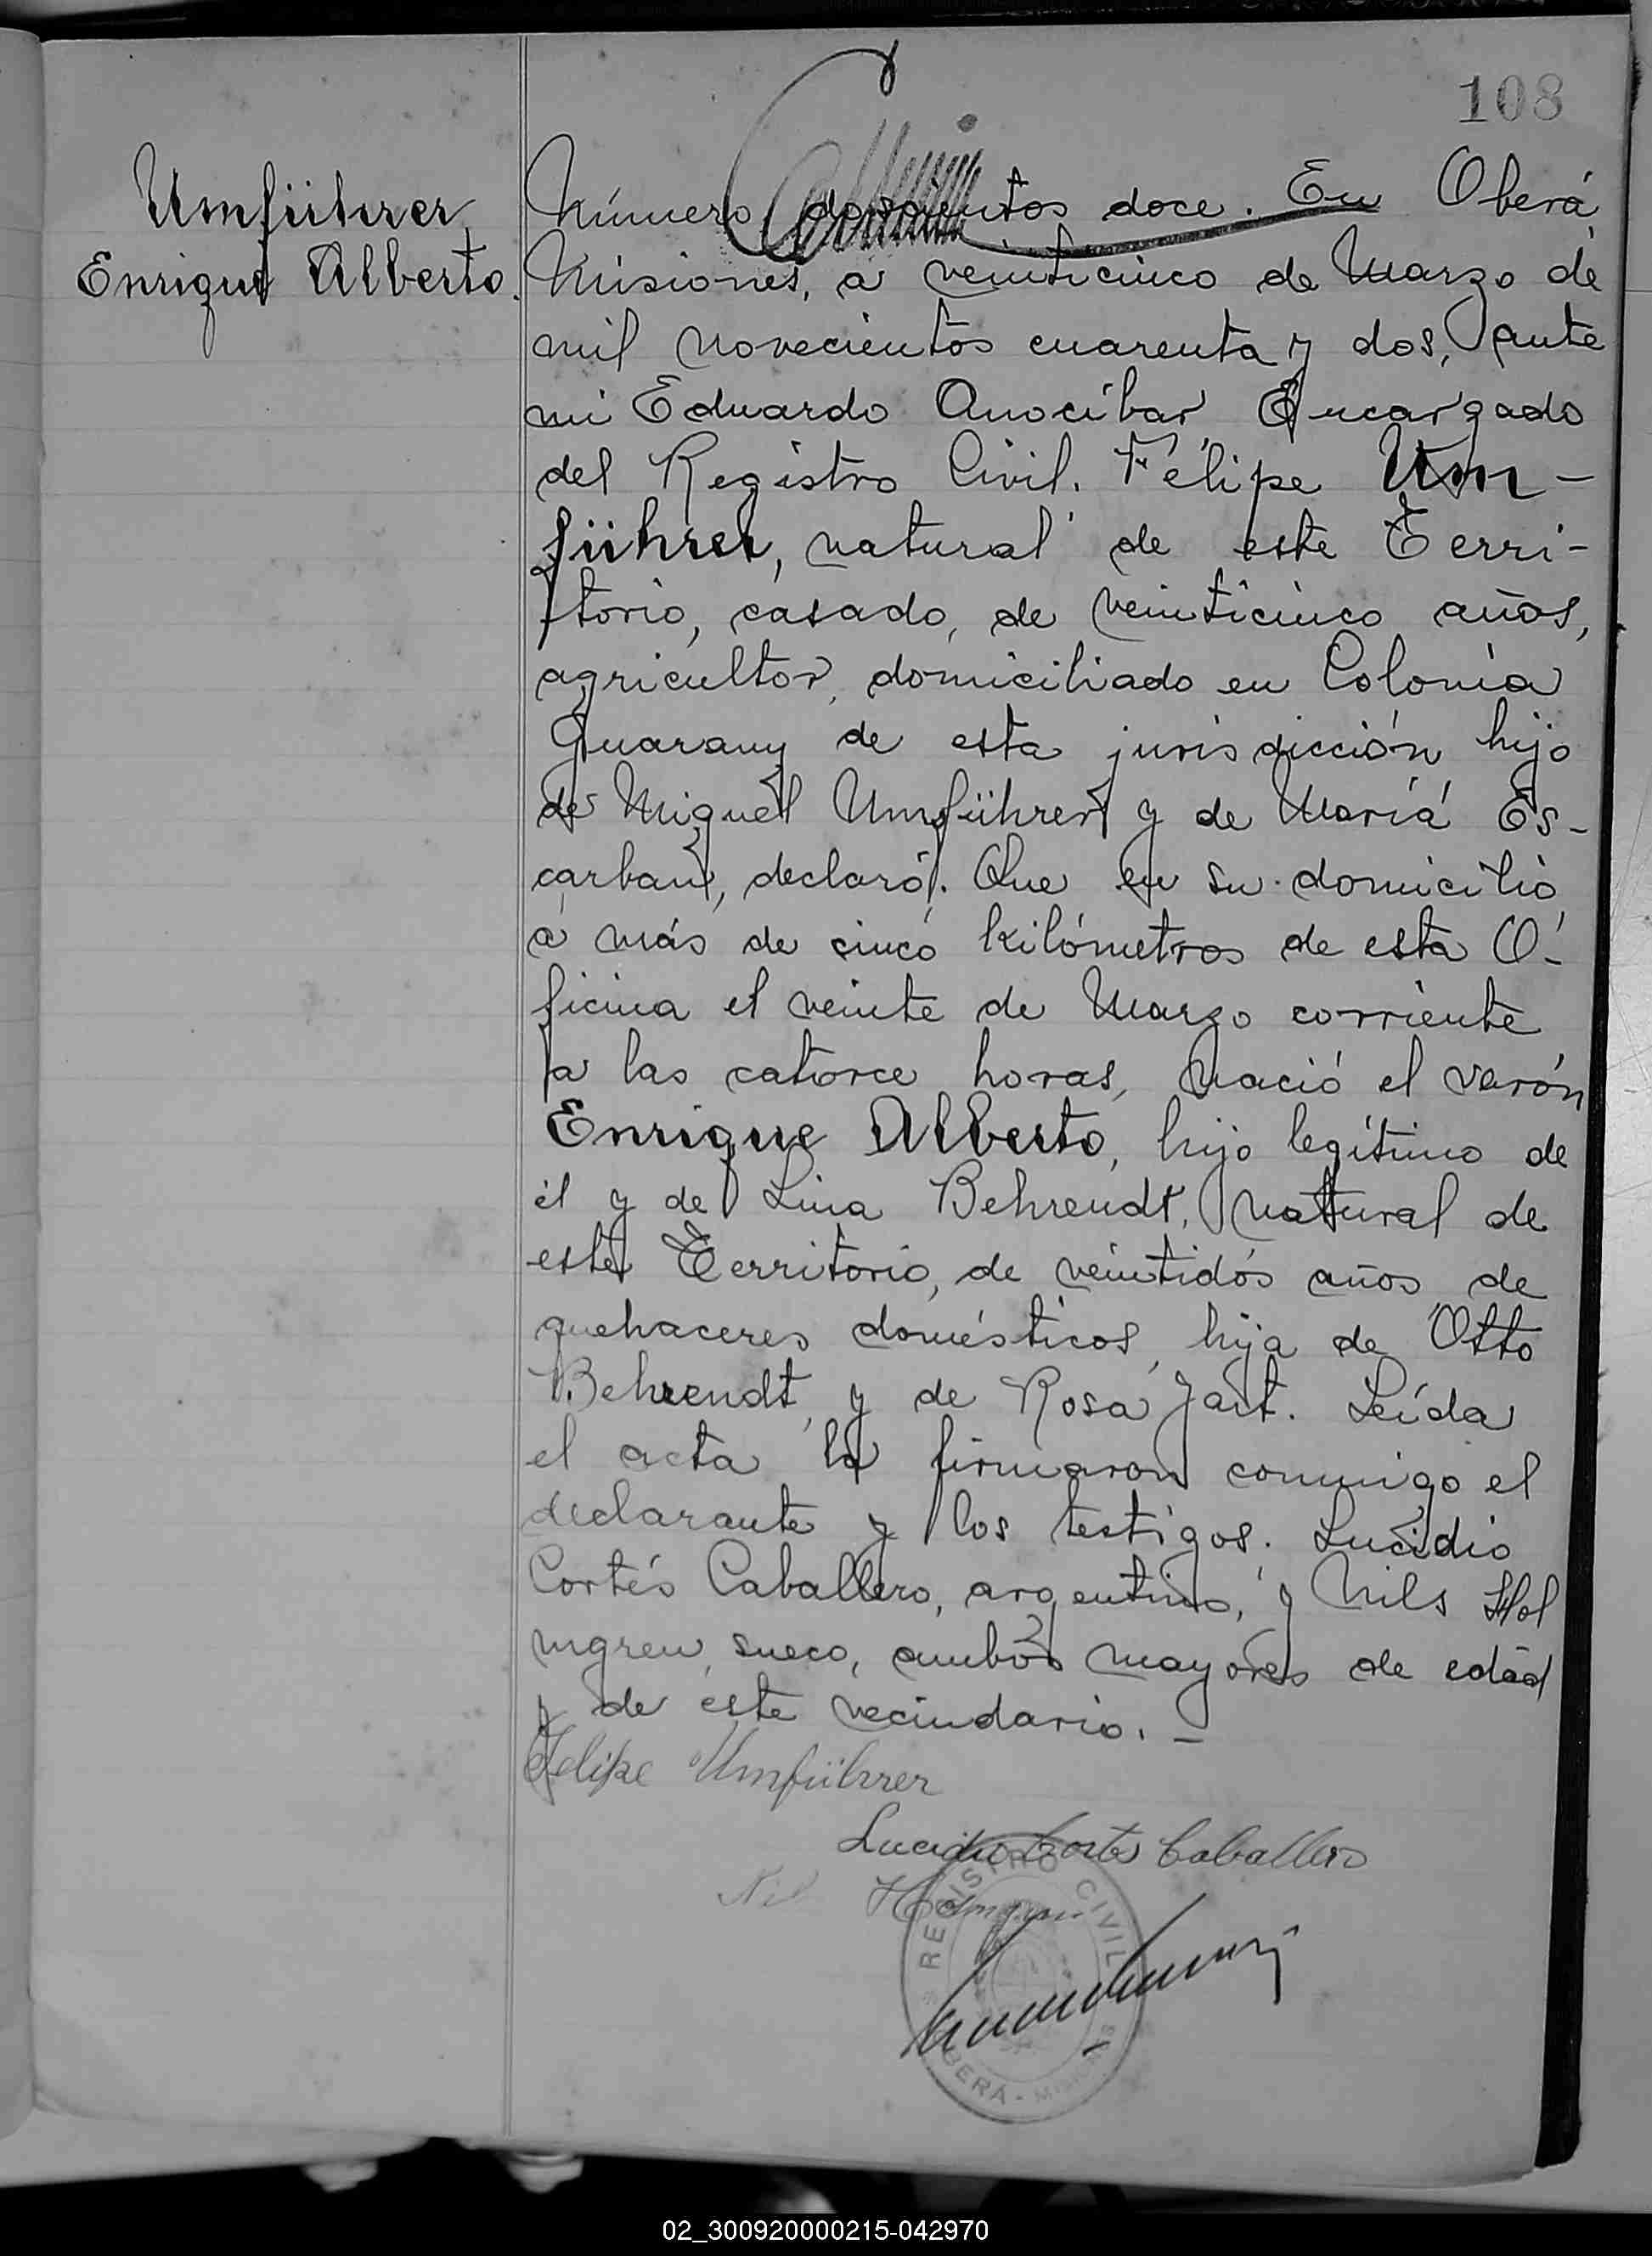 108
Umführer
Enrique Alberto.
Número doscientos doce. En Oberá
Misiones, a veinticinco de Marzo de
mil novecientos cuarenta y dos, ante
mi Eduardo Anocíbar Encargado
del Registro Civil. Félipe Um-
führer, natural de este Terri-
torio, casado, de veinticinco años,
agricultor, domiciliado en Colonia
Guarany de esta jurisdicción hijo
de Miguel Umführer y de María Es-
carban, declaró: Que en su domicilio
a más de cinco kilómetros de esta O-
ficina el veinte de Marzo corriente
a las catorce horas, nació el varón
Enrique Alberto, hijo legítimo de
él y de Lina Behrendt, natural de
este Territorio, de veintidós años de
quehaceres domésticos, hija de Otto
Behrendt y de Rosa Jart. Leída
el acta la firmaron conmigo el
declarante y los testigos. Lucidio
Cortés Caballero, argentino, y Nils Hol
mgren, sueco, ambos mayores de edad
y de este vecindario. -
Felipe Umführer
Lucidio Cortes Caballero
Holmgren
REGISTRO CIVIL
OBERÁ - MISIONES
02_300920000215-042970